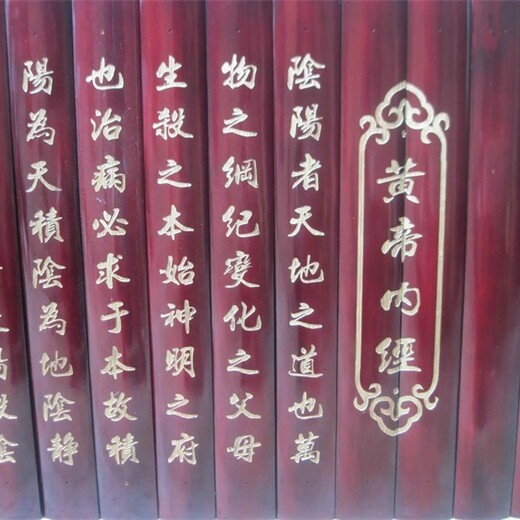 黄帝内經
陰陽者天地之道也萬
物之綱紀變化之父母
生殺之本始神明之府
也治病必求于本故積
陽為天積陰為地陰静